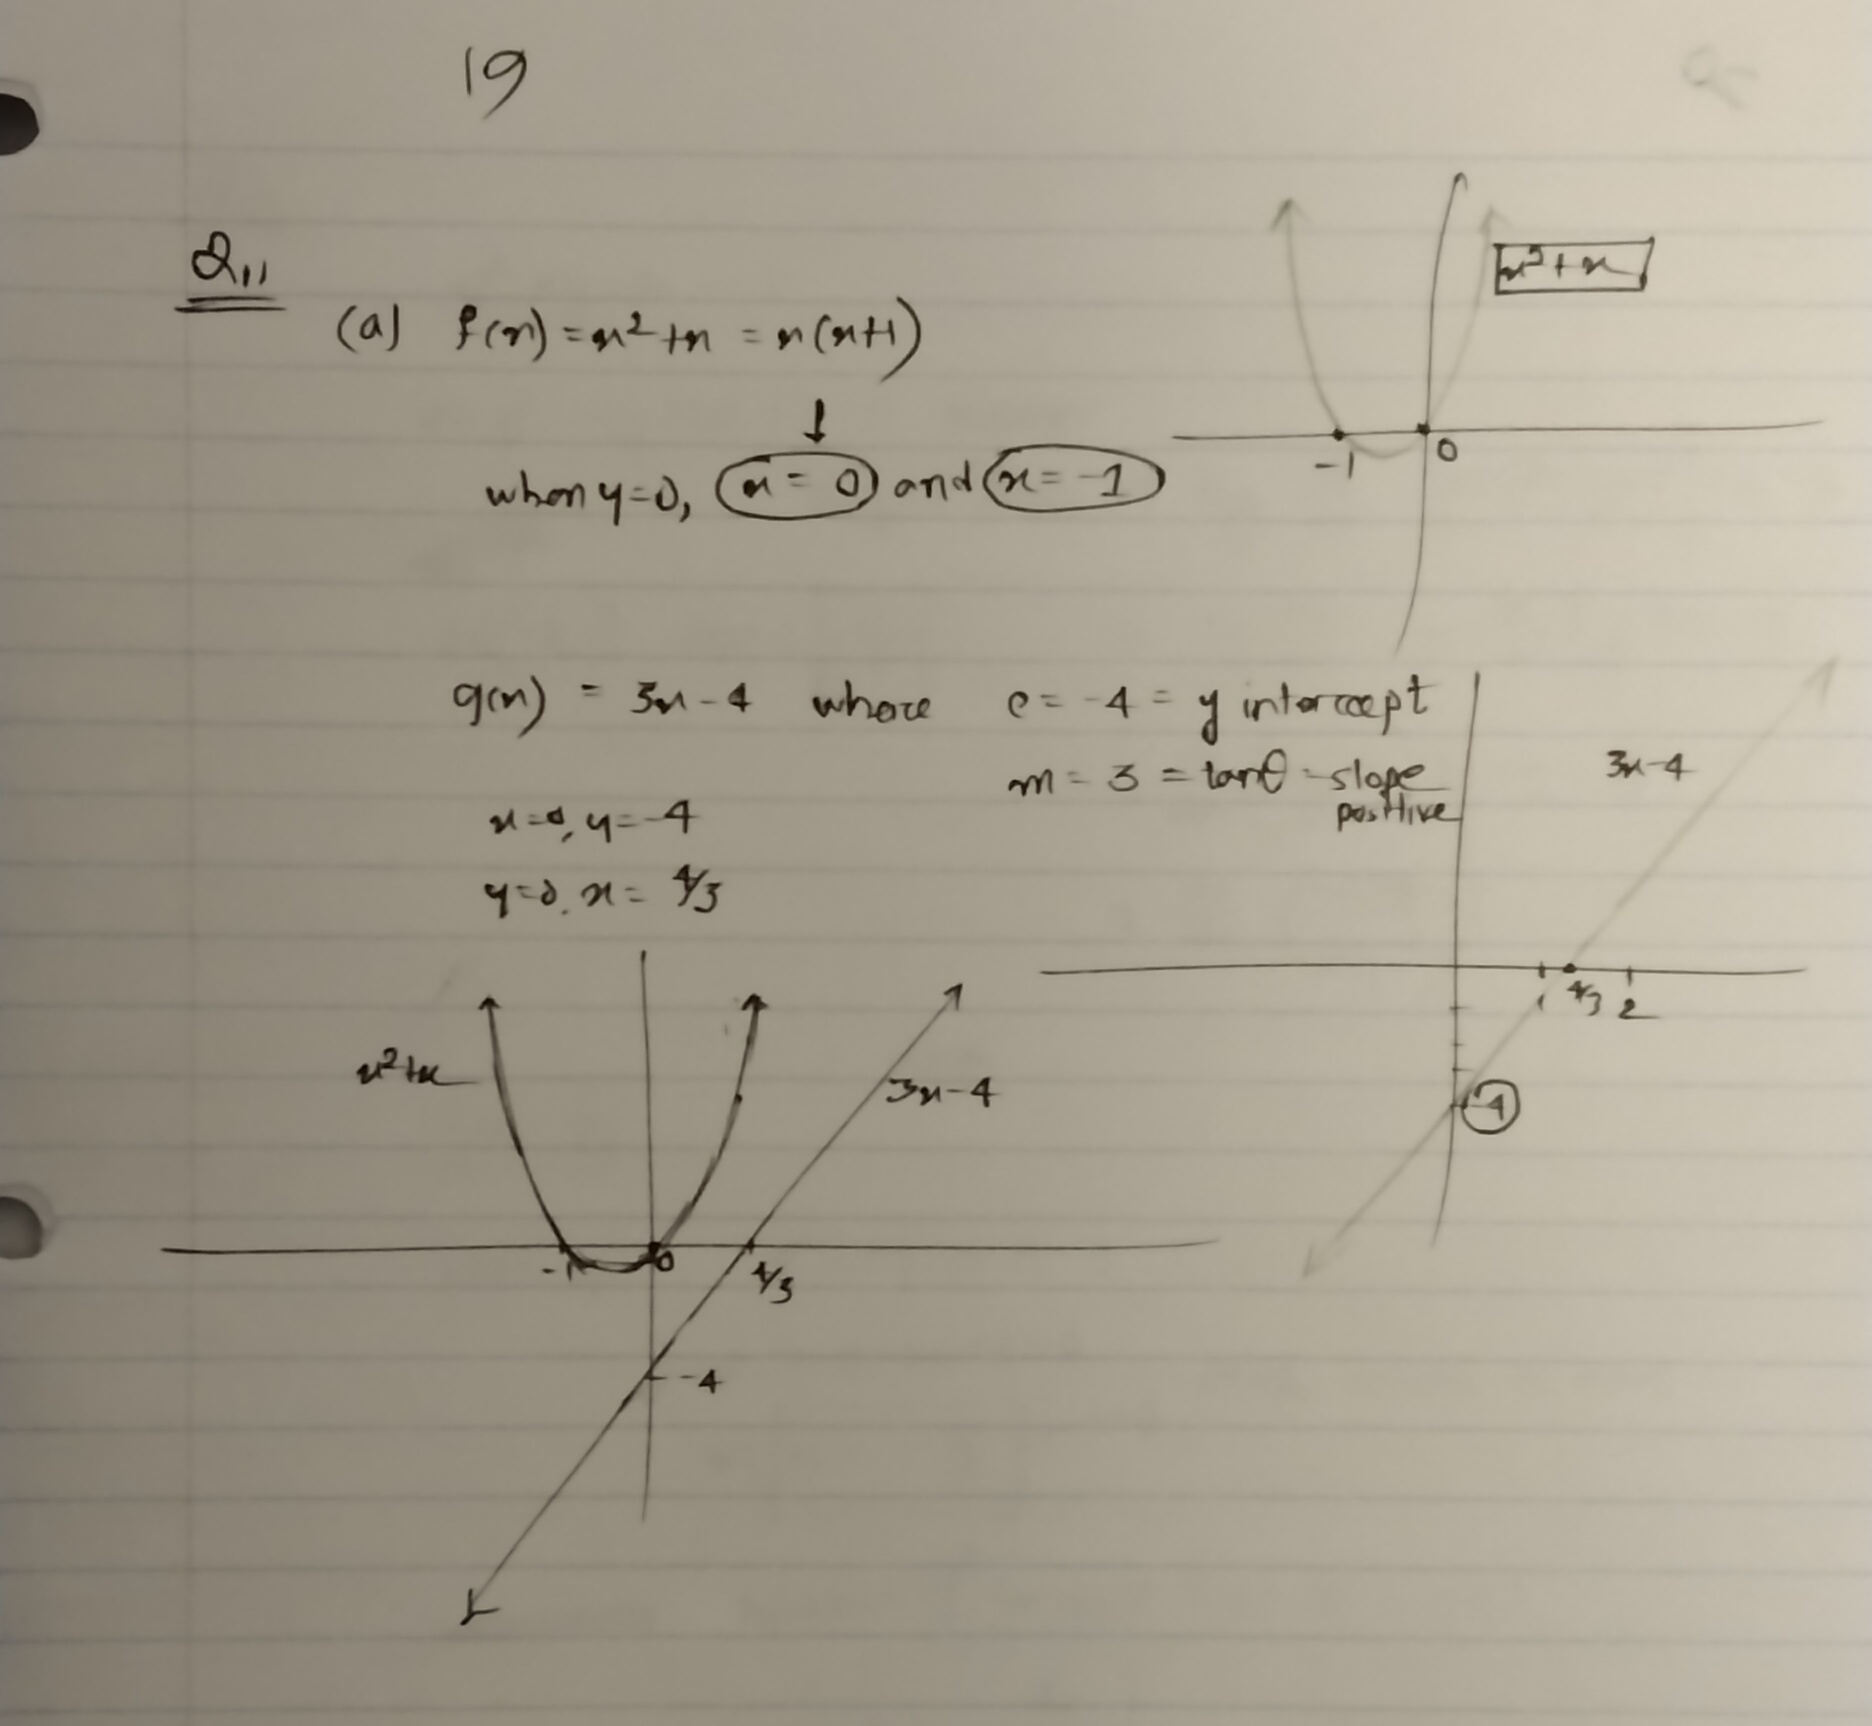 19
Q11
(a) f(x) = x² + x = x(x+1)
x² + x
↓
when y=0, x = 0 and x = -1
-1 0
g(x) = 3x - 4 where c = -4 = y intercept
m = 3 = tanθ = slope
positive
3x-4
x=0, y=-4
y=0, x= 4/3
1 4/3 2
-4
x²+x
3x-4
-1 0 4/3
-4